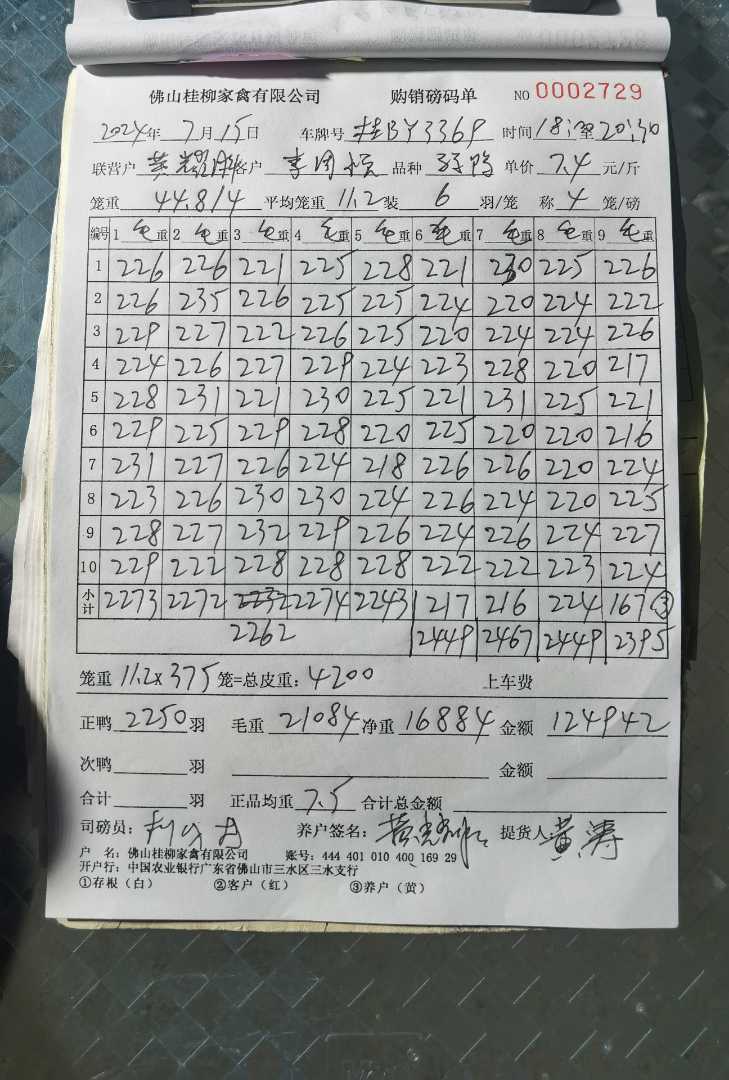 佛山桂柳家禽有限公司 购销磅码单 NO 0002729
2024年 7月15日 车牌号 桂BY3369 时间 18:至20:30
联营户 黄耀胜 客户 李周 品种 单价 7.4 元/斤
笼重 44.8/4 平均笼重 11.2 装 6 羽/笼 称 4 笼/磅
编号 1 毛重 2 毛重 3 毛重 4 毛重 5 毛重 6 毛重 7 毛重 8 毛重 9 毛重
1 226 226 221 225 228 221 230 225 226
2 226 235 226 225 225 224 220 224 222
3 229 227 222 226 225 220 224 224 226
4 224 226 227 229 224 223 228 220 217
5 228 231 221 230 225 221 231 225 221
6 229 225 229 228 220 225 220 220 216
7 231 227 226 224 218 226 226 220 224
8 223 226 230 230 224 226 224 220 225
9 228 227 232 229 226 224 226 224 227
10 229 222 228 228 228 222 222 223 224
小计 2273 2272 2232 2274 2243 217 216 224 167 ③
2262 2449 2467 2449 2395
笼重 11.2×375 笼=总皮重: 4200 上车费
正鸭 2250 羽 毛重 21084 净重 16884 金额 124942
次鸭 羽 金额
合计 羽 正品均重 7.5 合计总金额
司磅员: 养户签名: 黄 提货人 黄涛
户 名: 佛山桂柳家禽有限公司 账号: 444 401 010 400 169 29
开户行: 中国农业银行广东省佛山市三水区三水支行
①存根（白） ②客户（红） ③养户（黄）